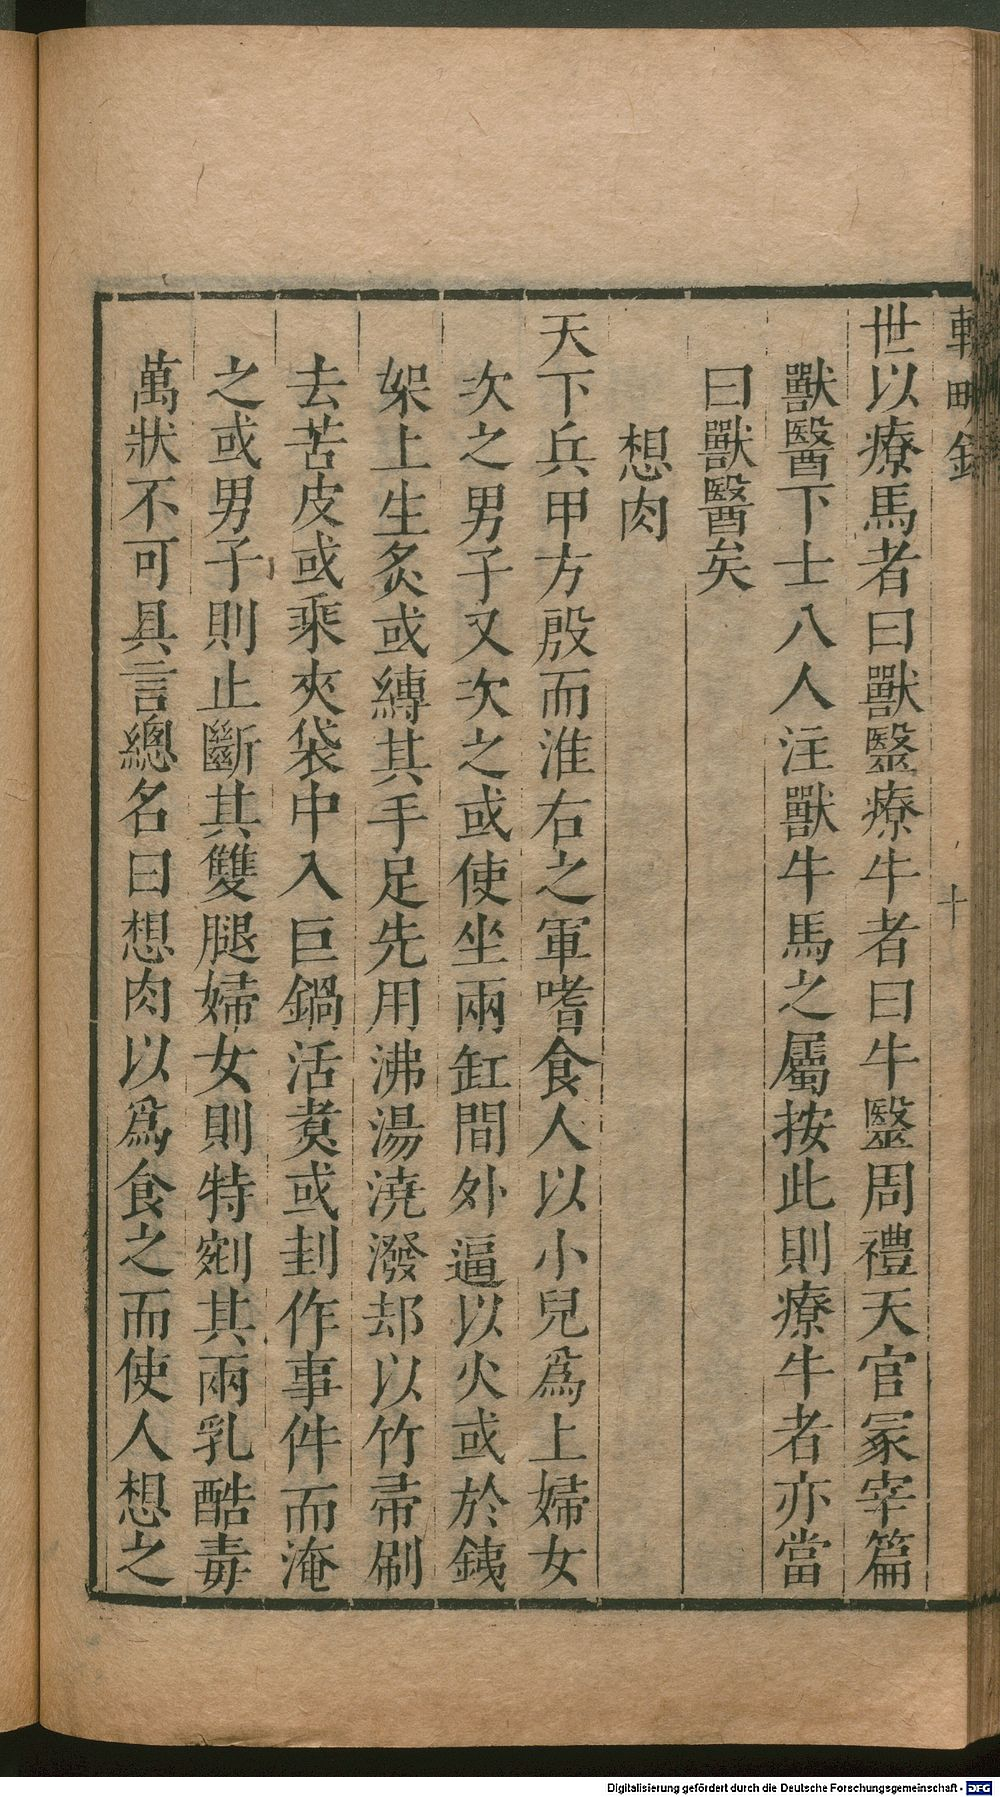 輟畊錄
十
世以療馬者曰獸毉療牛者曰牛毉周禮天官冢宰篇
獸醫下士八人注獸牛馬之屬按此則療牛者亦當
曰獸醫矣
想肉
天下兵甲方殷而淮右之軍嗜食人以小兒爲上婦女
次之男子又次之或使坐兩缸間外逼以火或於鐵
架上生炙或縛其手足先用沸湯澆潑却以竹帚刷
去苦皮或乘夾袋中入巨鍋活煑或刲作事件而淹
之或男子則止斷其雙腿婦女則特剜其兩乳酷毒
萬狀不可具言總名曰想肉以爲食之而使人想之
Digitalisierung gefördert durch die Deutsche Forschungsgemeinschaft - DFG